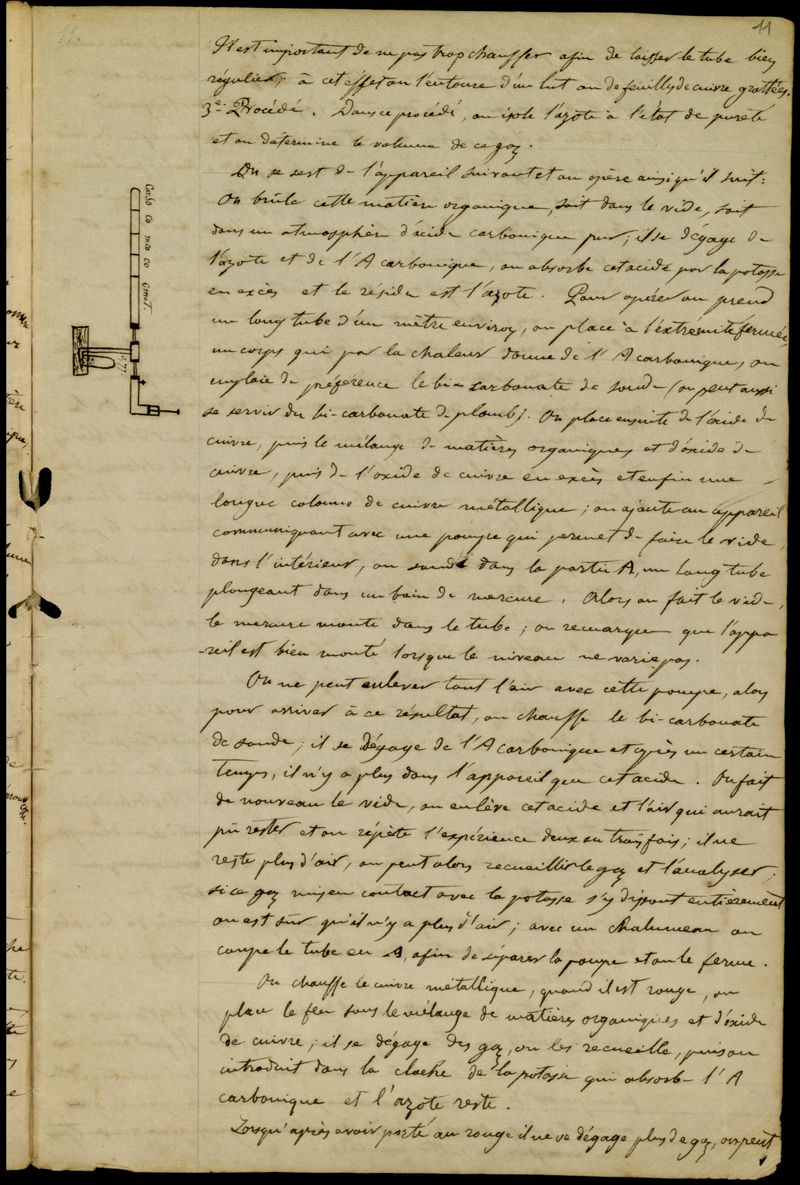 11
Il est important de ne pas trop chauffer afin de laisser le tube bien
régulier; à cet effet on l'entoure d'un lut ou de feuilles de cuivre grattées.
3e Procédé. Dans ce procédé, on isole l'azote à l'état de pureté
et on détermine le volume de ce gaz.
On se sert de l'appareil suivant et on opère ainsi qu'il suit:
On brûle cette matière organique, soit dans le vide, soit
dans un atmosphère d'acide carbonique pur; il se dégage de
l'azote et de l'A carbonique, on absorbe cet acide par la potasse
en excès et le résidu est l'azote. Pour opérer on prend
un long tube d'un mètre environ, on place à l'extrémité fermée
un corps qui par la chaleur donne de l'A carbonique, on
emploie de préférence le bi-carbonate de soude (on peut aussi
se servir du bi-carbonate de plomb). On place ensuite de l'oxide de
cuivre, puis le mélange de matières organiques et d'oxide de
cuivre, puis de l'oxide de cuivre en excès et enfin une
longue colonne de cuivre métallique; on ajoute un appareil
communiquant avec une pompe qui permet de faire le vide
dans l'intérieur, on soude dans la partie A, un long tube
plongeant dans un bain de mercure. Alors on fait le vide,
le mercure monte dans le tube; on remarque que l'appa
-reil est bien monté lorsque le niveau ne varie pas.
On ne peut enlever tout l'air avec cette pompe, alors
pour arriver à ce résultat, on chauffe le bi-carbonate
de soude; il se dégage de l'A carbonique et après un certain
temps, il n'y a plus dans l'appareil que cet acide. On fait
de nouveau le vide, on enlève cet acide et l'air qui aurait
pu rester et on répète l'expérience deux ou trois fois; il ne
reste plus d'air, on peut alors recueillir le gaz et l'analyser;
si ce gaz mis en contact avec la potasse s'y dissout entièrement
on est sûr qu'il n'y a plus d'air; avec un chalumeau on
coupe le tube en A, afin de séparer la pompe et on le ferme.
On chauffe le cuivre métallique, quand il est rouge, on
place le feu sous le mélange de matières organiques et d'oxide
de cuivre; il se dégage des gaz, on les recueille, puis on
introduit dans la cloche de la potasse qui absorbe l'A
carbonique et l'azote reste.
Lorsqu'après avoir porté au rouge il ne se dégage plus de gaz, on peut